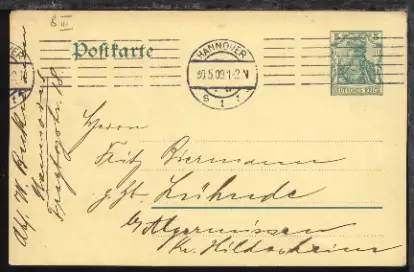 8 III
Postkarte
HANNOVER
30.5.09.1-2 N
5 5
DEUTSCHES REICH
Herrn
Fritz Biermann
z. Zt. Lühnde
b/ Algermissen
Kr. Hildesheim
Abs. W.
Hannover